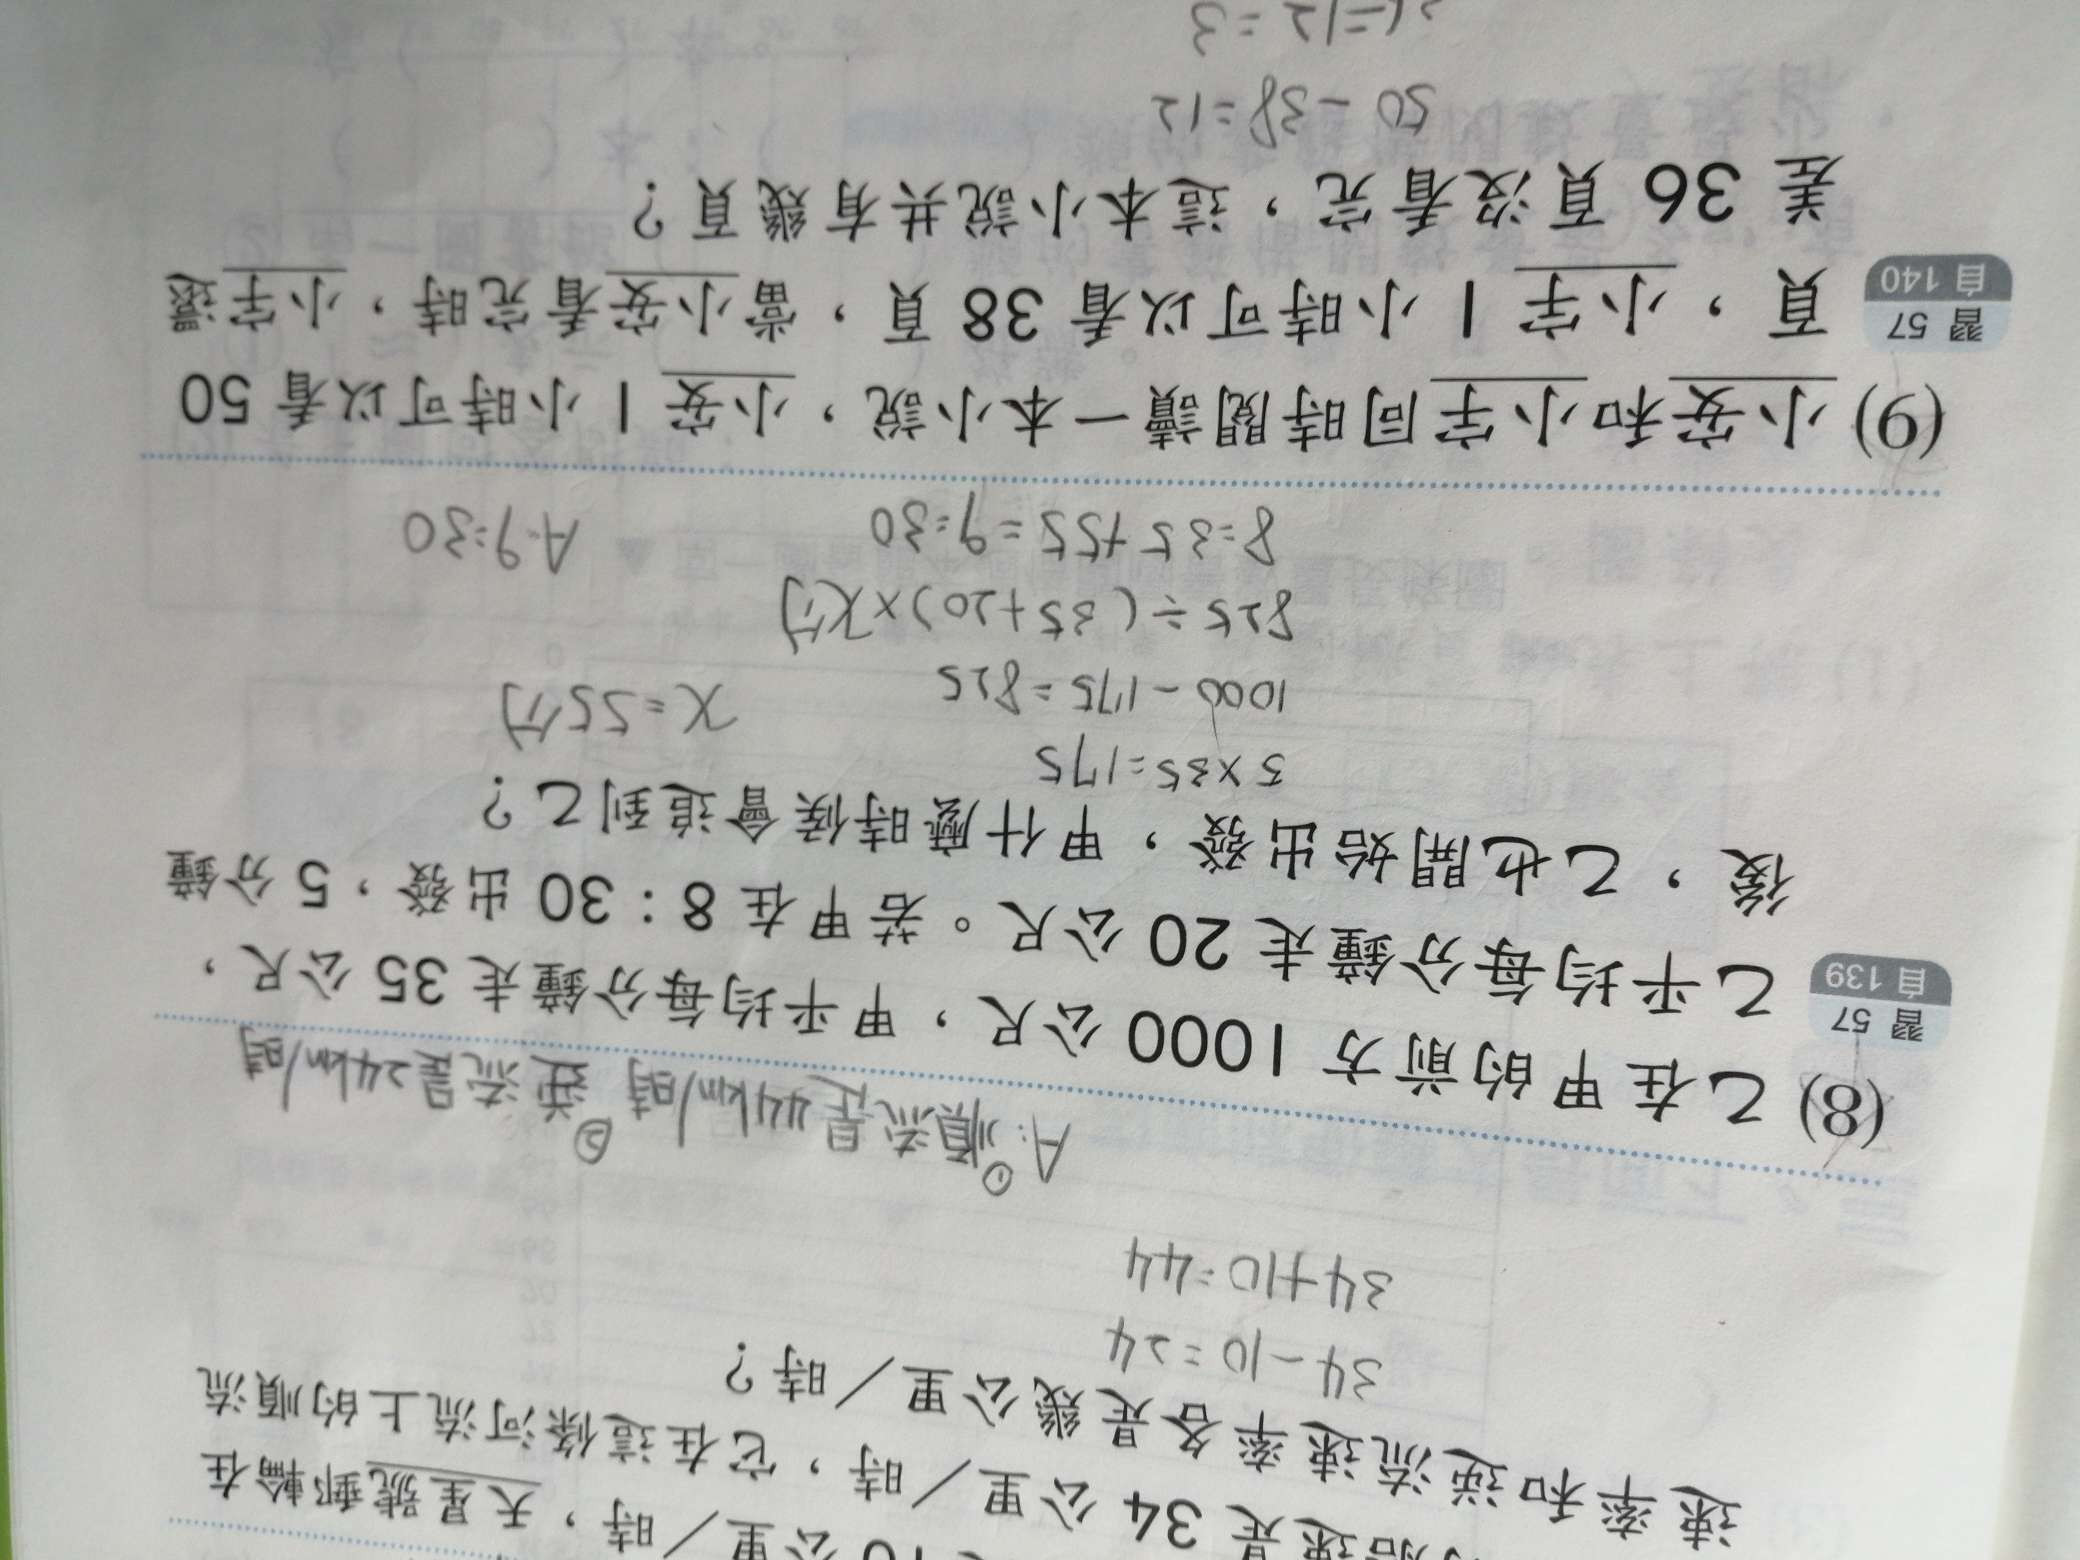 10公里／時，天星號郵輪在
船速是 34 公里／時，它在這條河流上的順流
速率和逆流速率各是幾公里／時？
34-10=24
34+10=44
A:①順流是44km/時 ②逆流是24km/時
(8) 乙在甲的前方 1000 公尺，甲平均每分鐘走 35 公尺，
習 57
自 139
乙平均每分鐘走 20 公尺。若甲在 8：30 出發，5 分鐘
後，乙也開始出發，甲什麼時候會追到乙？
5×35=175
1000-175=825
x=55分
825÷(35+20)×X分
8:35+55=9:30
A:9:30
(9) 小安和小宇同時閱讀一本小說，小安 1 小時可以看 50
習 57
自 140
頁，小宇 1 小時可以看 38 頁，當小安看完時，小宇還
差 36 頁沒看完，這本小說共有幾頁？
50-38=12
÷12=3